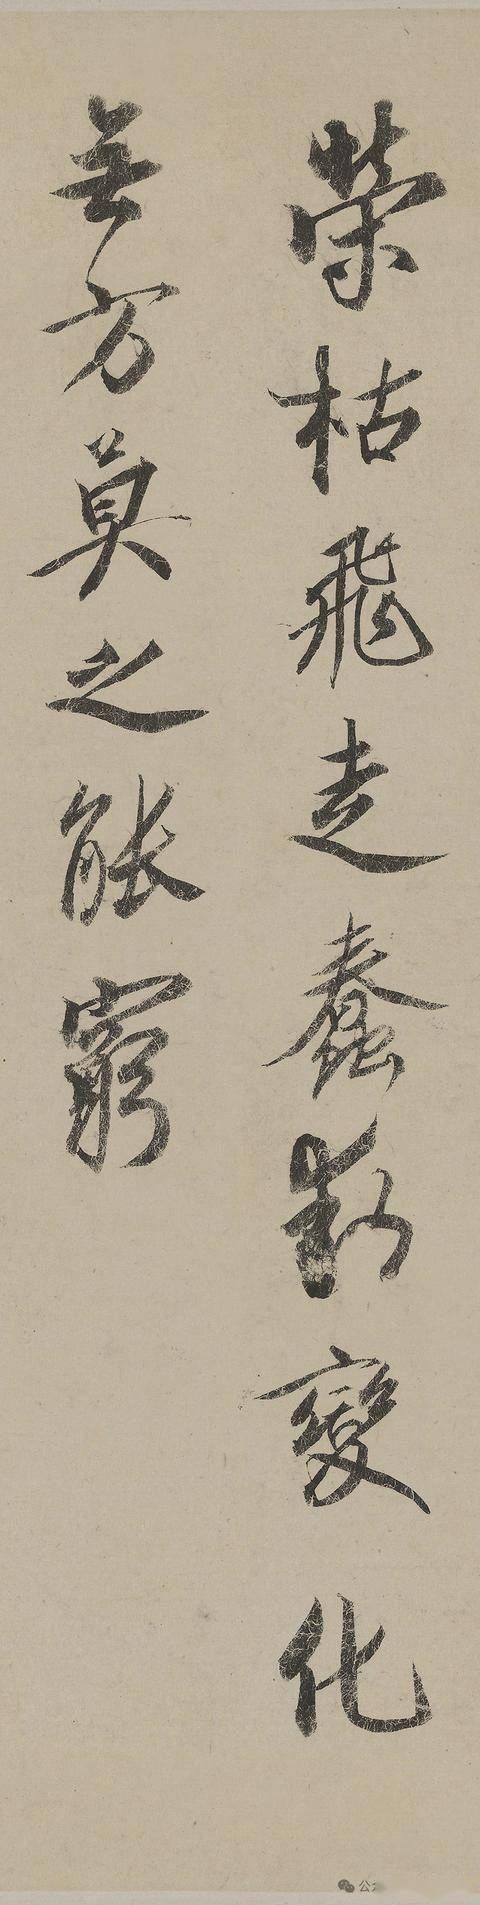 榮枯飛走蠢動變化
無方莫之能窮
公